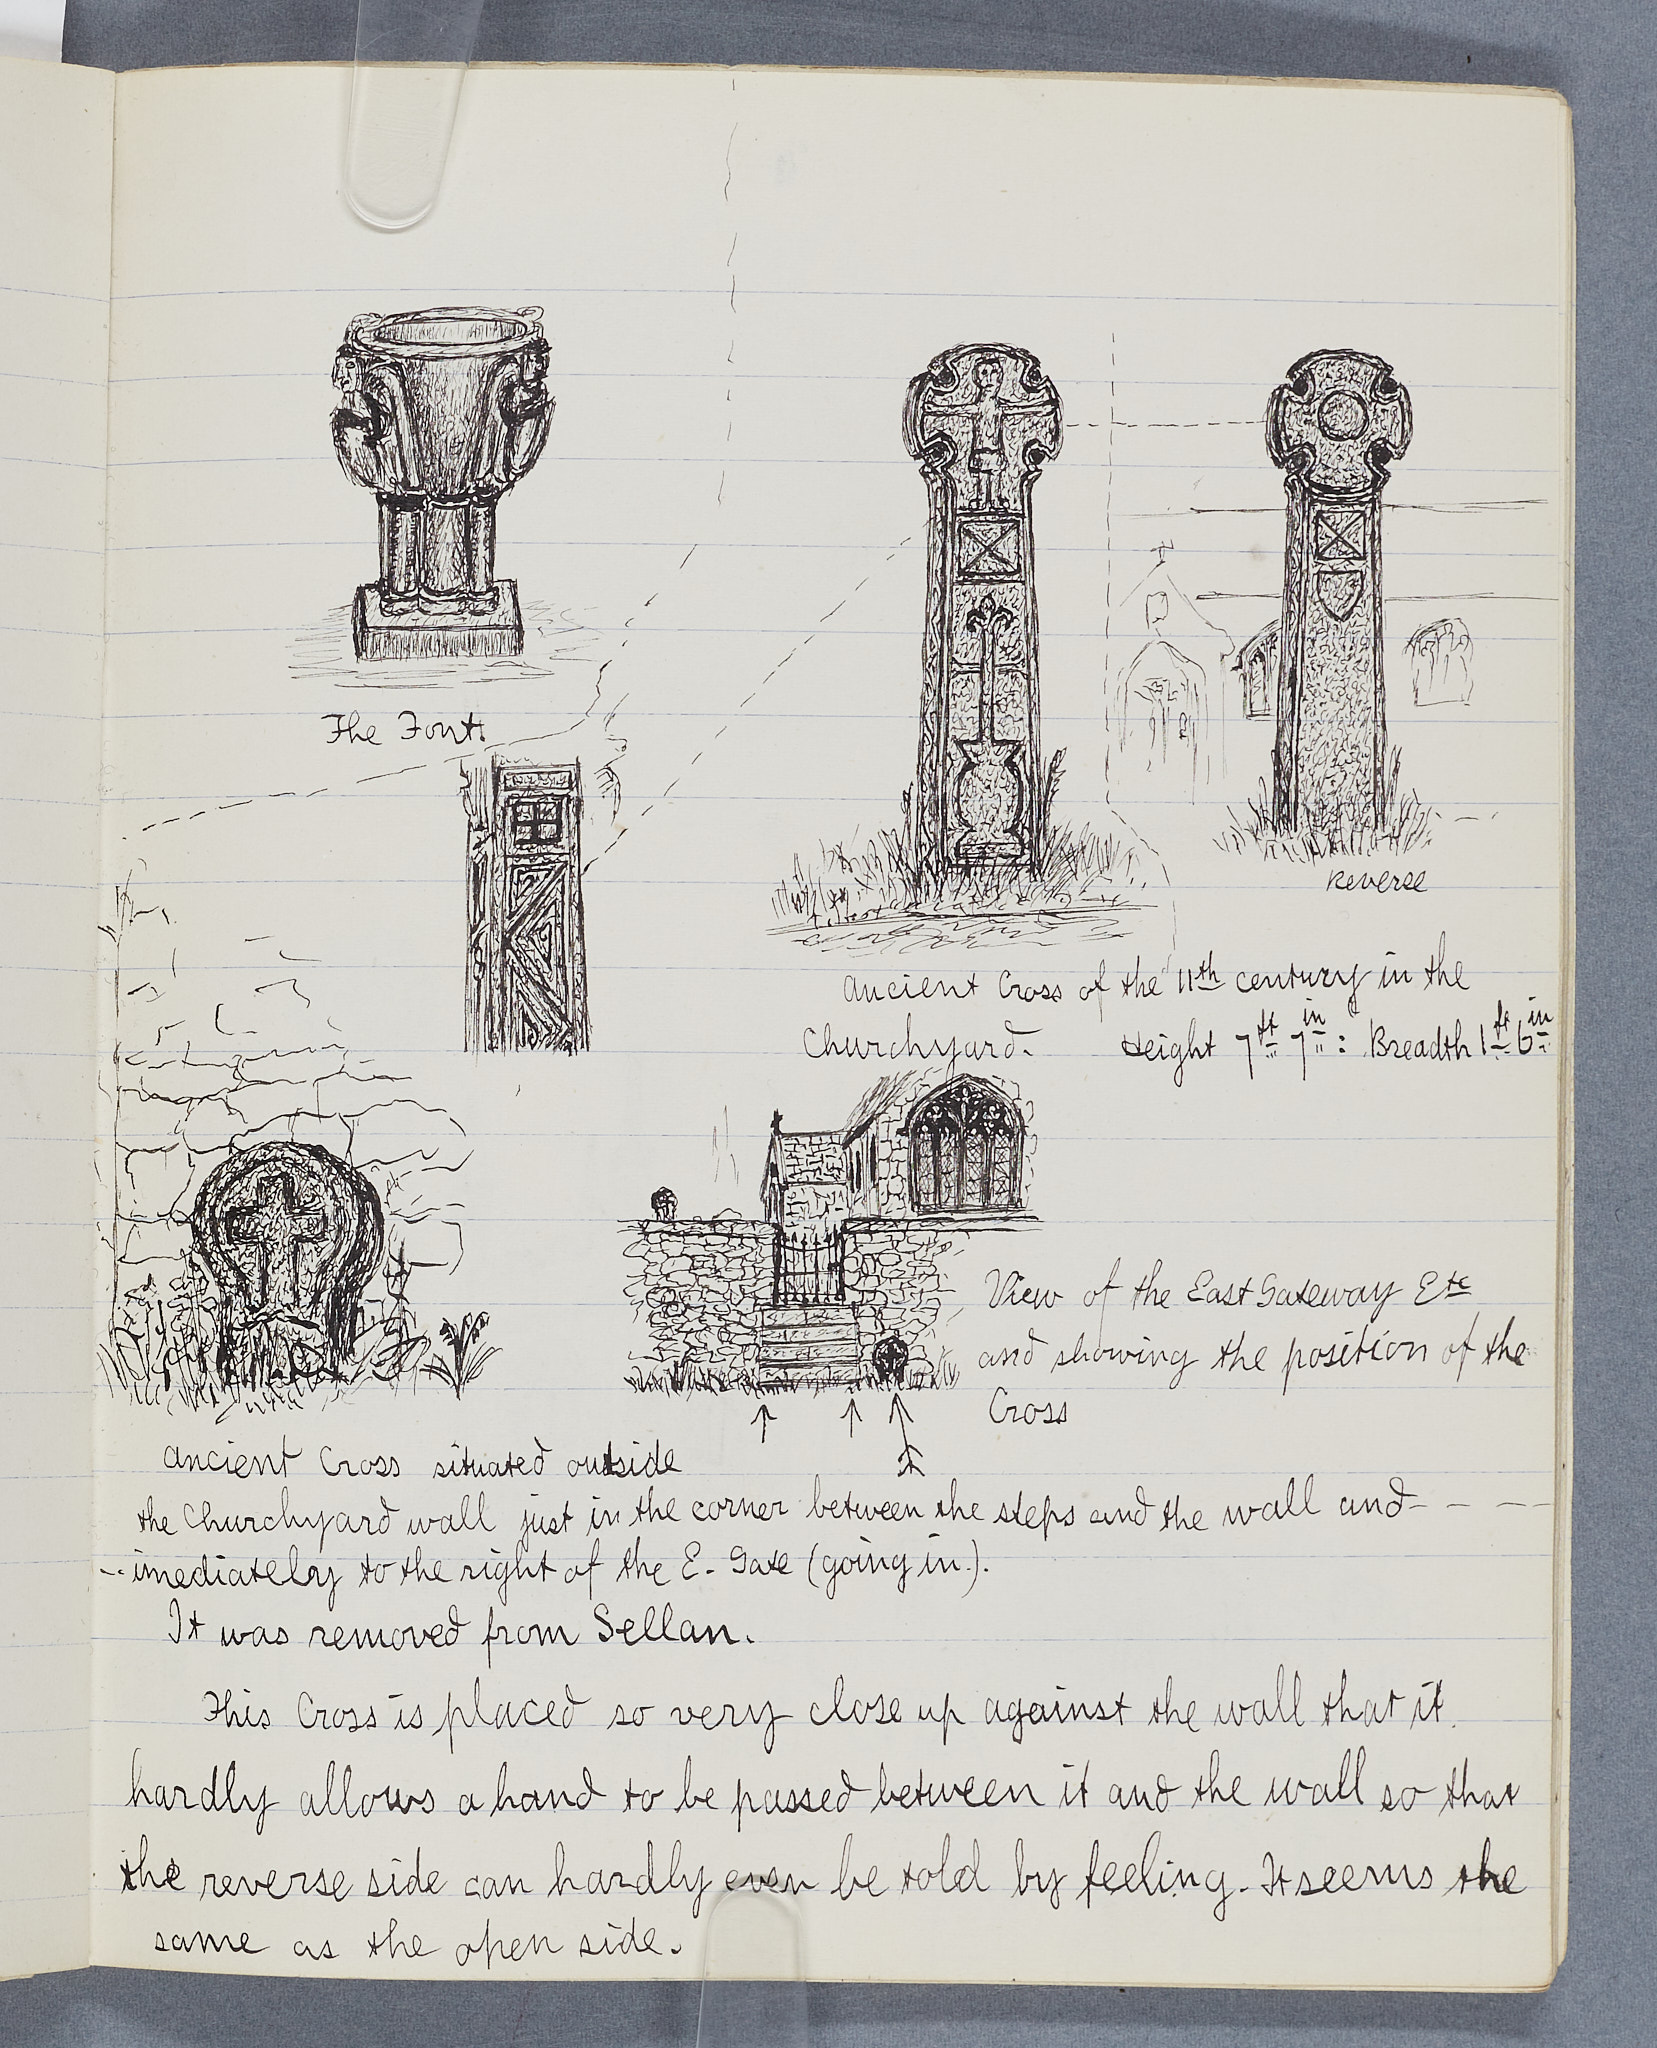 The Font.
Reverse
Ancient Cross of the 11th century in the
Churchyard. Height 7ft 7in: Breadth 1ft 6in
View of the East Gateway Etc
and showing the position of the
Cross
Ancient Cross situated outside
the Churchyard wall just in the corner between the steps and the wall and - - - -
-- imediately to the right of the E. Gate (going in.).
It was removed from Sellan.
This Cross is placed so very close up against the wall that it
hardly allows a hand to be passed between it and the wall so that
the reverse side can hardly even be told by feeling. It seems the
same as the open side.